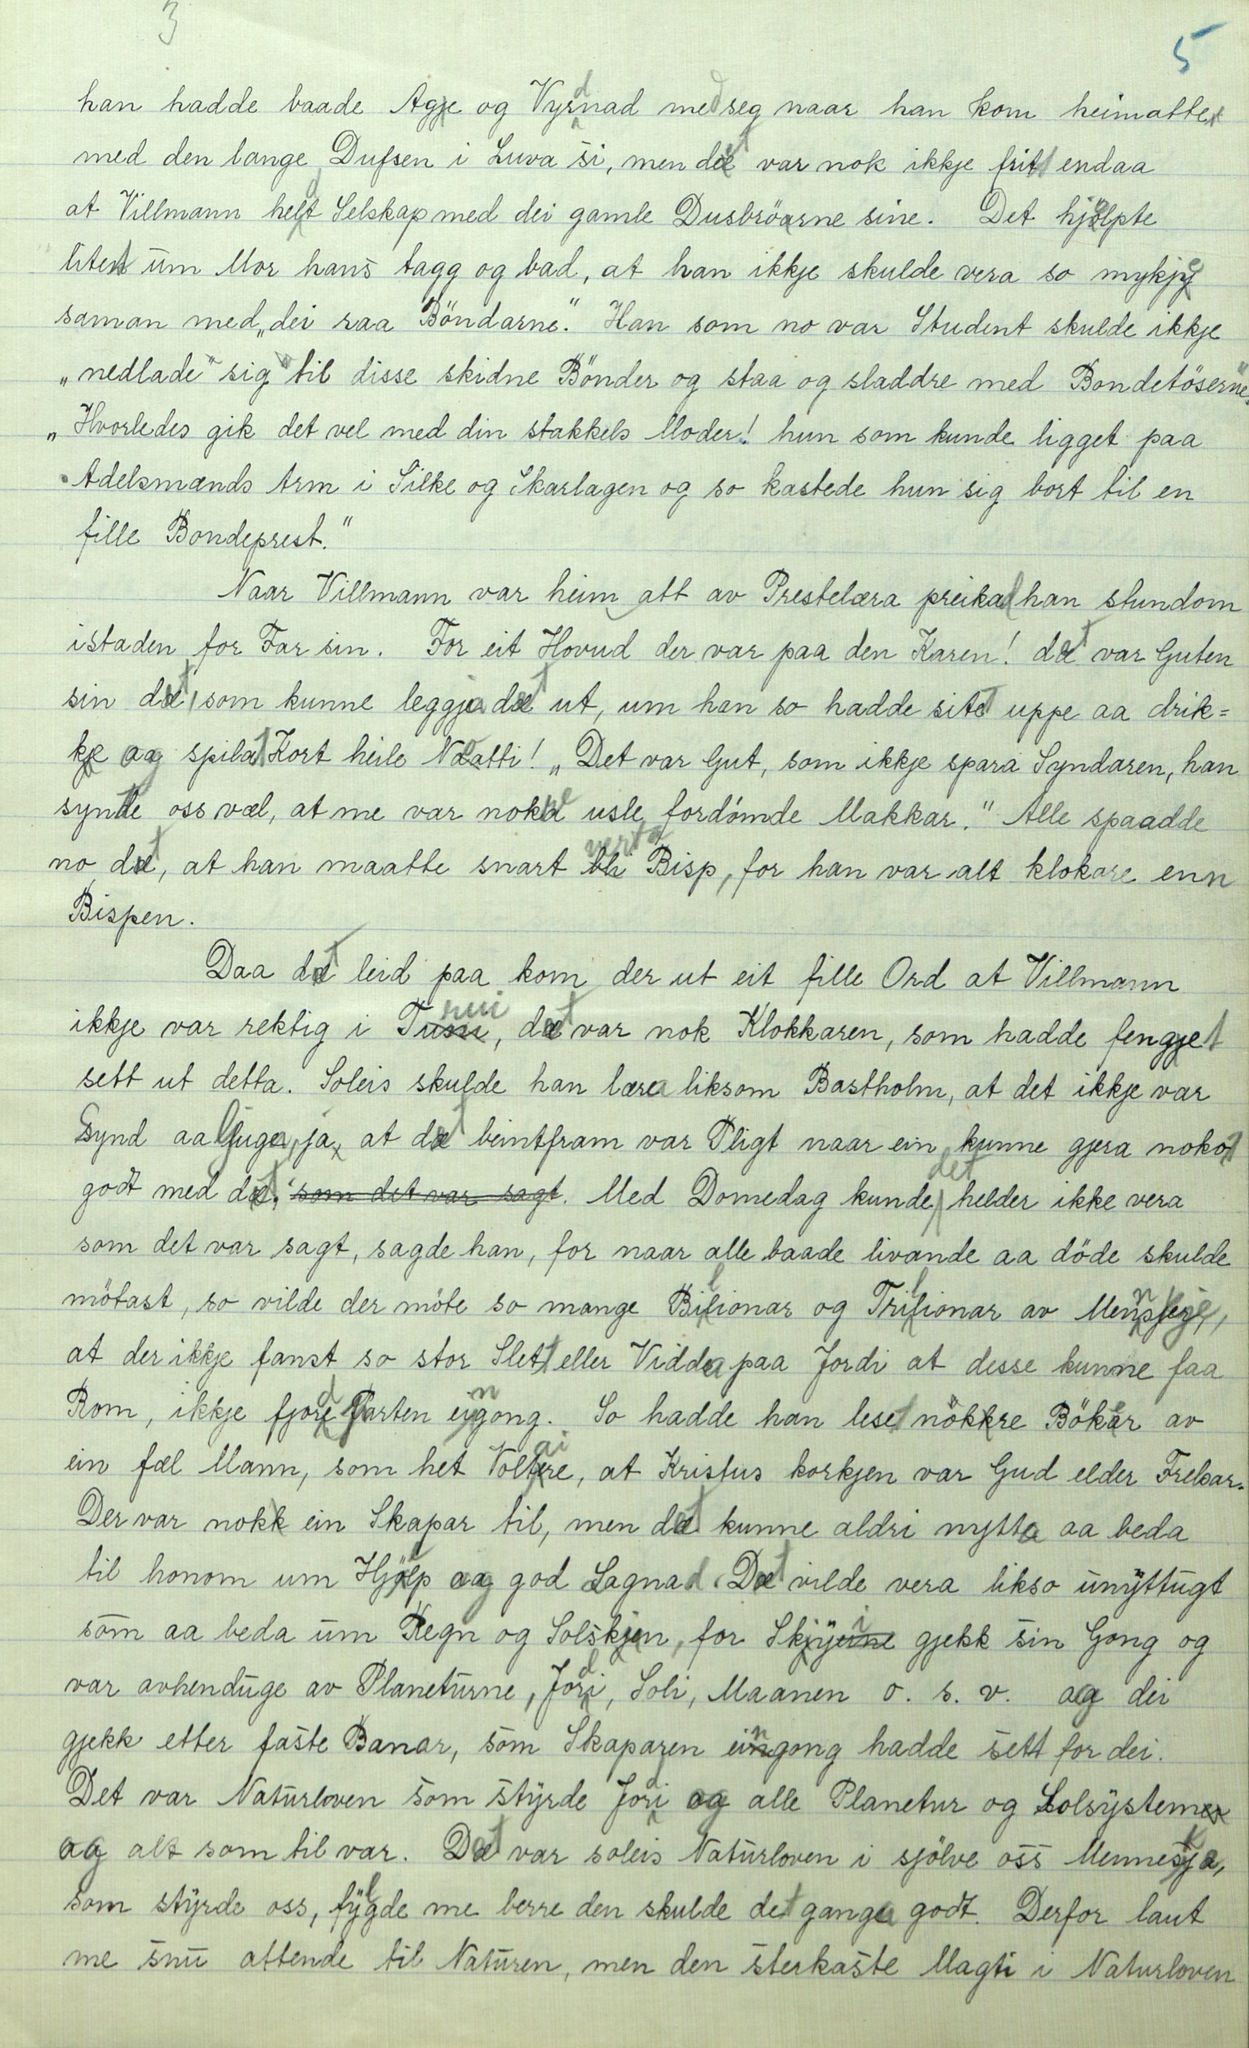 3
5
han hadde baade Agje og Vyrdnad med seg naar han kom heimatte
med den lange Dufsen i Luva si, men det var nok ikkje frit endaa
at Villmann helt Selskap med dei gamle Dusbröarne sine. Det hjølpte
litet um Mor hans tagg og bad, at han ikkje skulde vera so mykje
saman med „dei raa Böndarne." Han som no var Student skulde ikkje
„nedlade" sig til disse skidne Bönder og staa og sladdre med Bondetöserne.
„Hvorledes gik det vel med din stakkels Moder! hun som kunde ligget paa
Adelsmands Arm i Silke og Skarlagen og so kastede hun sig bort til en
fille Bondeprest."
Naar Villmann var heim att av Prestelæra preikad han stundom
istaden for Far sin. For eit Hovud der var paa den Karen! det var Guten
sin det, som kunne leggja det ut, um han so hadde sitet uppe aa drik=
kje og spilat Kort heile Natti! „Det var Gut, som ikkje spara Syndaren, han
synte oss væl, at me var nokre usle, fordömde Makkar." Alle spaadde
no det, at han maatte snart bli verta Bisp, for han var alt klokare enn
Bispen.
Daa det leid paa kom der ut eit fille Ord at Villmann
ikkje var rektig i Trui, det var nok Klokkaren, som hadde fengjet
sett ut detta. Soleis skulde han læra liksom Bastholm, at det ikkje var
Synd aa ljuga, ja, at det beintfram var Pligt naar ein kunne gjera nokot
godt med det, som det var sagt. Med Domedag kunde det helder ikke vera
som det var sagt, sagde han, for naar alle baade livande aa döde skulde
mötast, so vilde der möte so mange Bilionar og Trilionar av Mennskje,
at der ikkje fanst so stor Slett eller Vidda paa Jordi at desse kunne faa
Rom, ikkje fjorde Parten eingong. So hadde han leset nökkre Böker av
ein fæl Mann, som het Voltaire, at Kristus korkjen var Gud elder Frelsar.
Der var nokk ein Skapar til, men det kunne aldri nytta aa beda
til honom um Hjölp og god Lagnad. Det vilde vera likso unyttugt
som aa beda um Regn og Solskjen, for Skyi gjekk sin Gong og
var avhenduge av Planeturne, Jordi, Soli, Maanen o. s. v. og dei
gjekk etter faste Banar, som Skaparen eingong hadde sett for dei.
Det var Naturloven som styrde Jordi og alle Planetur og Solsystem
og alt som til var. Det var soleis Naturloven i sjölve oss Menneskja,
som styrde oss, fylgde me berre den skulde det ganga godt. Derfor laut
me snu attende til Naturen, men den sterkaste Magti i Naturloven